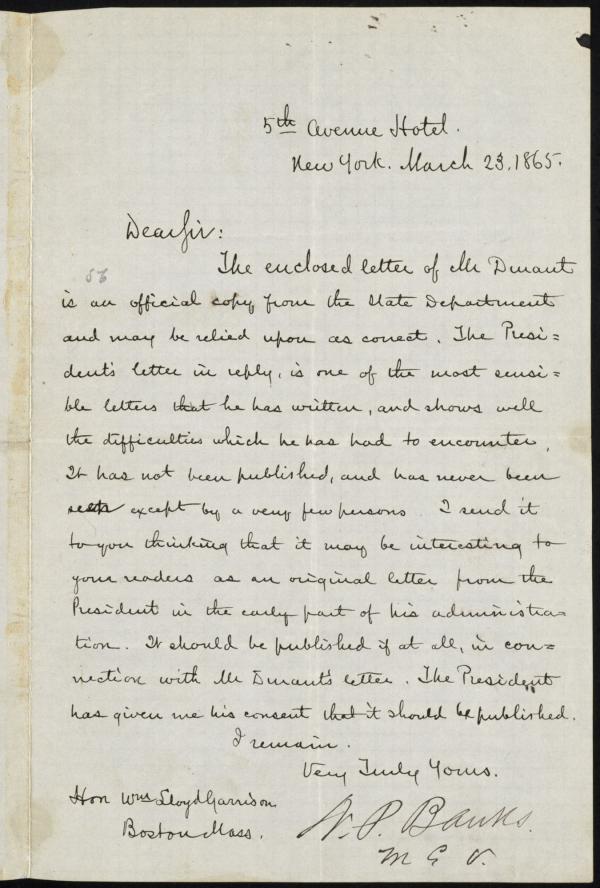 5th Avenue Hotel.
New York. March 23, 1865.
Dear Sir:
56
The enclosed letter of Mr Durant
is an official copy from the State Department
and may be relied upon as correct. The Presi=
dent's letter in reply, is one of the most sensi=
ble letters that he has written, and shows well
the difficulties which he has had to encounter.
It has not been published, and has never been
seen except by a very few persons. I send it
to you thinking that it may be interesting to
your readers as an original letter from the
President in the early part of his administra=
tion. It should be published if at all, in con=
nection with Mr Durant's letter. The President
has given me his consent that it should be published.
I remain.
Very Truly Yours.
Hon Wm Lloyd Garrison
Boston Mass.
N. P. Banks.
M G V.